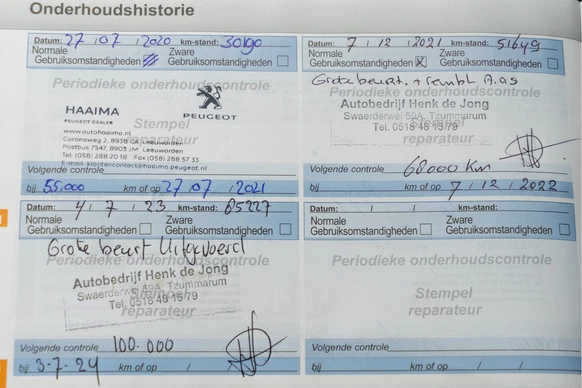 Onderhoudshistorie
Datum: 27 / 07 / 2020 km-stand: 30190
Normale Gebruiksomstandigheden
Zware Gebruiksomstandigheden
Periodieke onderhoudscontrole
HAAIMA
PEUGEOT DEALER
PEUGEOT
www.autohaaima.nl
Stempel
Postbus 7547, 8903 JM Leeuwarden
Tel. (058) 288 20 18 Fax (058) 288 57 33
reparateur
Volgende controle
bij 55.000 km of op 27 / 07 / 2021
Datum: 7 / 12 / 2021 km-stand: 51649
Normale Gebruiksomstandigheden
Zware Gebruiksomstandigheden
Grote beurt. +
Periodieke onderhoudscontrole
Autobedrijf Henk de Jong
Swaerderwei 59A, Tzummarum
Stempel
Tel. 0518 48 1579
reparateur
Volgende controle 68000 km
bij km of op 7 / 12 / 2022
Datum: 4 / 7 / 23 km-stand: 85227
Normale Gebruiksomstandigheden
Zware Gebruiksomstandigheden
Grote beurt Uitgevoerd
Periodieke onderhoudscontrole
Autobedrijf Henk de Jong
Tzummarum
Stempel
Tel. 0518 48 1579
reparateur
Volgende controle 100.000
bij 3-7-24 km of op /
Datum: / / km-stand:
Normale Gebruiksomstandigheden
Zware Gebruiksomstandigheden
Periodieke onderhoudscontrole
Stempel
reparateur
Volgende controle
bij km of op / /